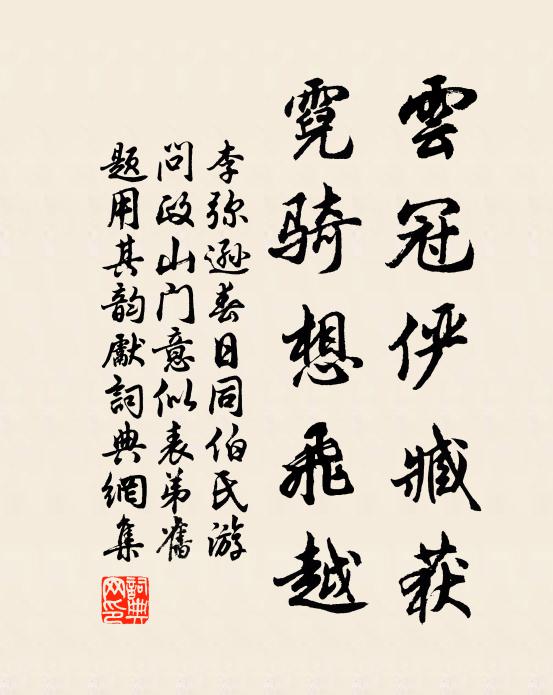 雲冠俨臧获
霓骑想飛越
李弥遜春日同伯氏游
问政山门意似表弟舊
题用其韵獻詞典網集
詞典网印